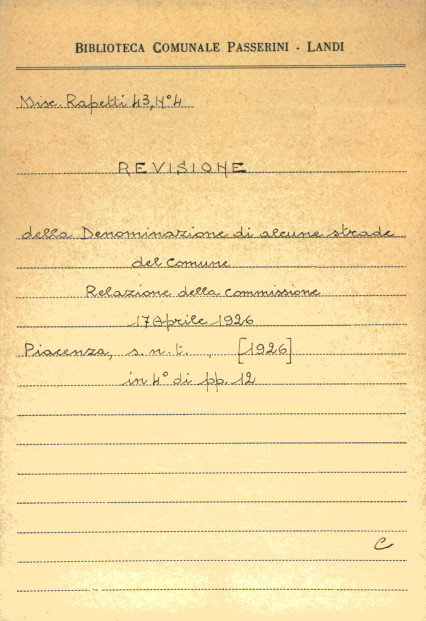 BIBLIOTECA COMUNALE PASSERINI - LANDI
Misc. Rapetti 43, N° 4
REVISIONE
della Denominazione di alcune strade
del Comune
Relazione della Commissione
17 Aprile 1926
Piacenza, s. n. t. , [1926]
in 4° di pp. 12
C